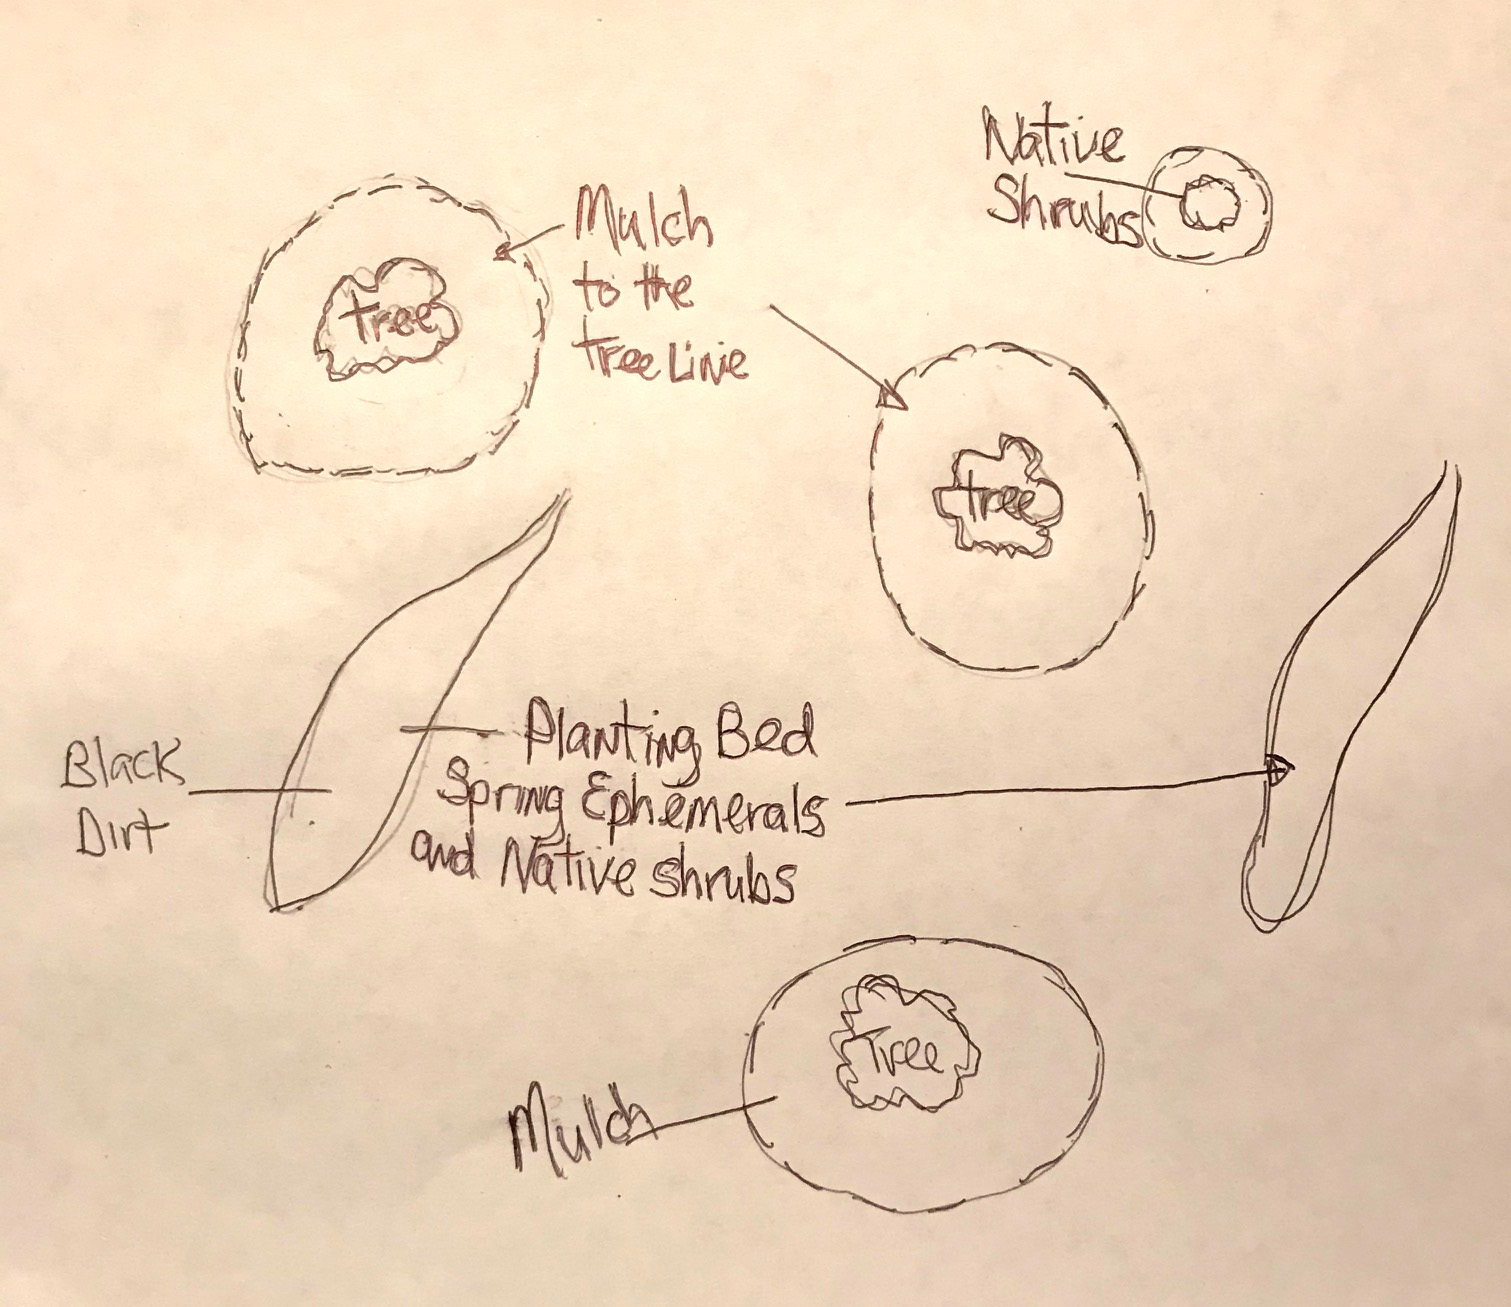 Native
Shrubs
Mulch
to the
Tree Line
tree
tree
Planting Bed
Spring Ephemerals
and Native shrubs
Black
Dirt
Tree
Mulch